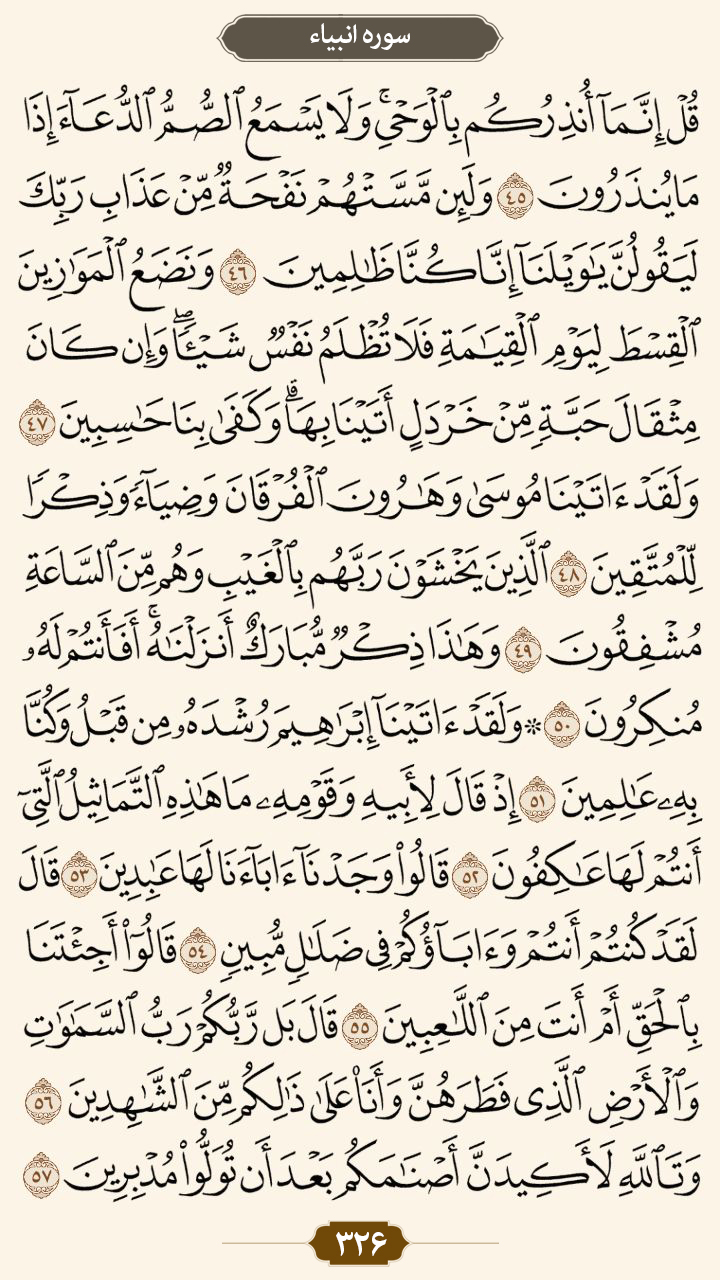 سوره انبیاء
قُلْ إِنَّمَآ أُنذِرُكُم بِٱلْوَحْىِ ۚ وَلَا يَسْمَعُ ٱلصُّمُّ ٱلدُّعَآءَ إِذَا
مَا يُنذَرُونَ ٤٥ وَلَئِن مَّسَّتْهُمْ نَفْحَةٌ مِّنْ عَذَابِ رَبِّكَ
لَيَقُولُنَّ يَٰوَيْلَنَآ إِنَّا كُنَّا ظَٰلِمِينَ ٤٦ وَنَضَعُ ٱلْمَوَٰزِينَ
ٱلْقِسْطَ لِيَوْمِ ٱلْقِيَٰمَةِ فَلَا تُظْلَمُ نَفْسٌ شَيْـًٔا ۖ وَإِن كَانَ
مِثْقَالَ حَبَّةٍ مِّنْ خَرْدَلٍ أَتَيْنَا بِهَا ۗ وَكَفَىٰ بِنَا حَٰسِبِينَ ٤٧
وَلَقَدْ ءَاتَيْنَا مُوسَىٰ وَهَٰرُونَ ٱلْفُرْقَانَ وَضِيَآءً وَذِكْرًا
لِّلْمُتَّقِينَ ٤٨ ٱلَّذِينَ يَخْشَوْنَ رَبَّهُم بِٱلْغَيْبِ وَهُم مِّنَ ٱلسَّاعَةِ
مُشْفِقُونَ ٤٩ وَهَٰذَا ذِكْرٌ مُّبَارَكٌ أَنزَلْنَٰهُ ۚ أَفَأَنتُمْ لَهُۥ
مُنكِرُونَ ٥٠ ۞ وَلَقَدْ ءَاتَيْنَآ إِبْرَٰهِيمَ رُشْدَهُۥ مِن قَبْلُ وَكُنَّا
بِهِۦ عَٰلِمِينَ ٥١ إِذْ قَالَ لِأَبِيهِ وَقَوْمِهِۦ مَا هَٰذِهِ ٱلتَّمَاثِيلُ ٱلَّتِىٓ
أَنتُمْ لَهَا عَٰكِفُونَ ٥٢ قَالُوا۟ وَجَدْنَآ ءَابَآءَنَا لَهَا عَٰبِدِينَ ٥٣ قَالَ
لَقَدْ كُنتُمْ أَنتُمْ وَءَابَآؤُكُمْ فِى ضَلَٰلٍ مُّبِينٍ ٥٤ قَالُوٓا۟ أَجِئْتَنَا
بِٱلْحَقِّ أَمْ أَنتَ مِنَ ٱللَّٰعِبِينَ ٥٥ قَالَ بَل رَّبُّكُمْ رَبُّ ٱلسَّمَٰوَٰتِ
وَٱلْأَرْضِ ٱلَّذِى فَطَرَهُنَّ وَأَنَا۠ عَلَىٰ ذَٰلِكُم مِّنَ ٱلشَّٰهِدِينَ ٥٦
وَتَٱللَّهِ لَأَكِيدَنَّ أَصْنَٰمَكُم بَعْدَ أَن تُوَلُّوا۟ مُدْبِرِينَ ٥٧
۳۲۶